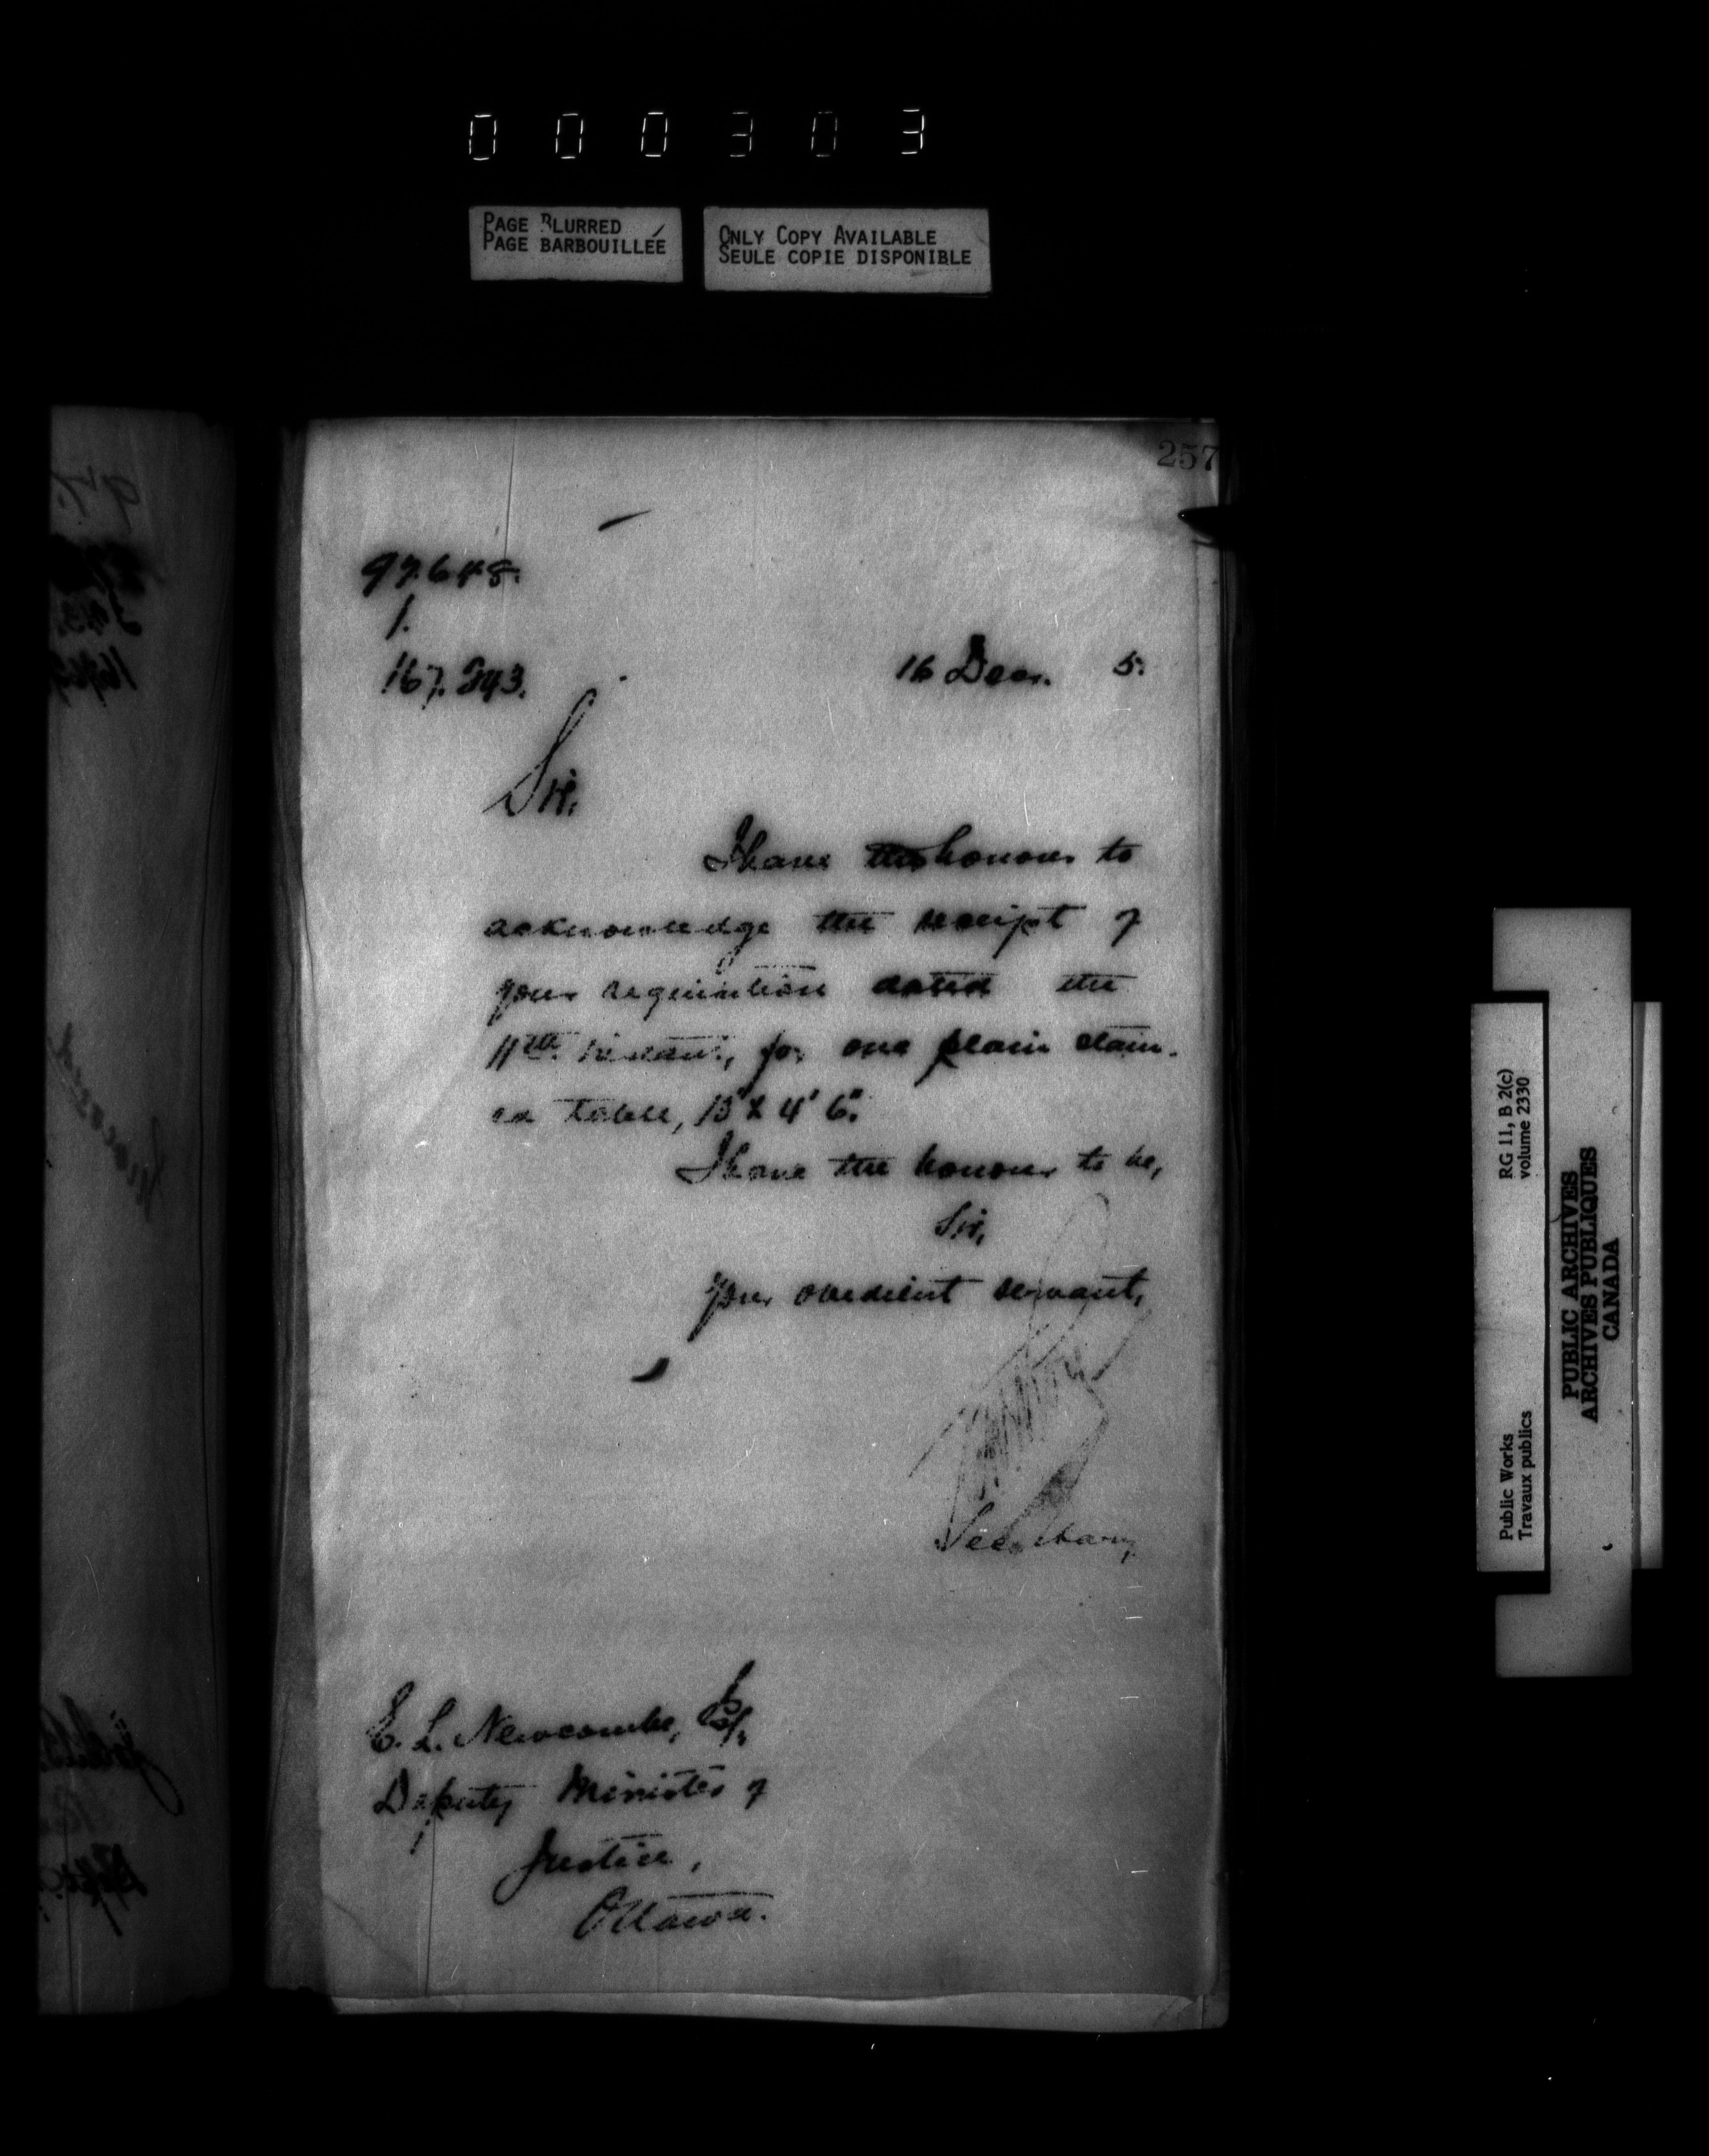 000303
PAGE BLURRED
PAGE BARBOUILLÉE
ONLY COPY AVAILABLE
SEULE COPIE DISPONIBLE
257
97.648.
1.
167.343.
16 Decr. 5.
Sir,
I have the honour to
acknowledge the receipt of
your requisition dated the
11th instant, for one plain stain-
ed table, 13' x 4' 6".
I have the honour to be,
Sir,
Your obedient servant,
Secretary
E. L. Newcombe, Esq.
Deputy Minister of
Justice,
Ottawa.
Public Works
Travaux publics
RG 11, B 2(c)
volume 2330
PUBLIC ARCHIVES
ARCHIVES PUBLIQUES
CANADA